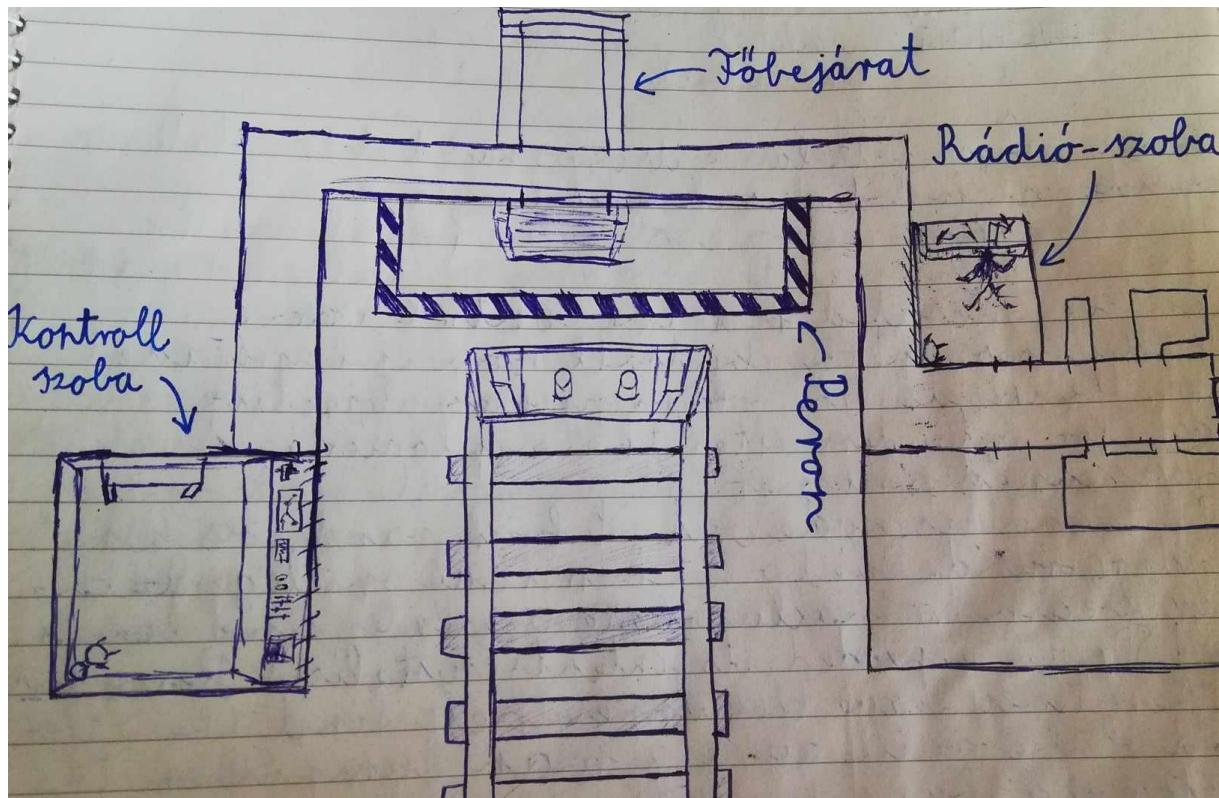 Főbejárat
Rádió-szoba
Kontroll
szoba
Peron